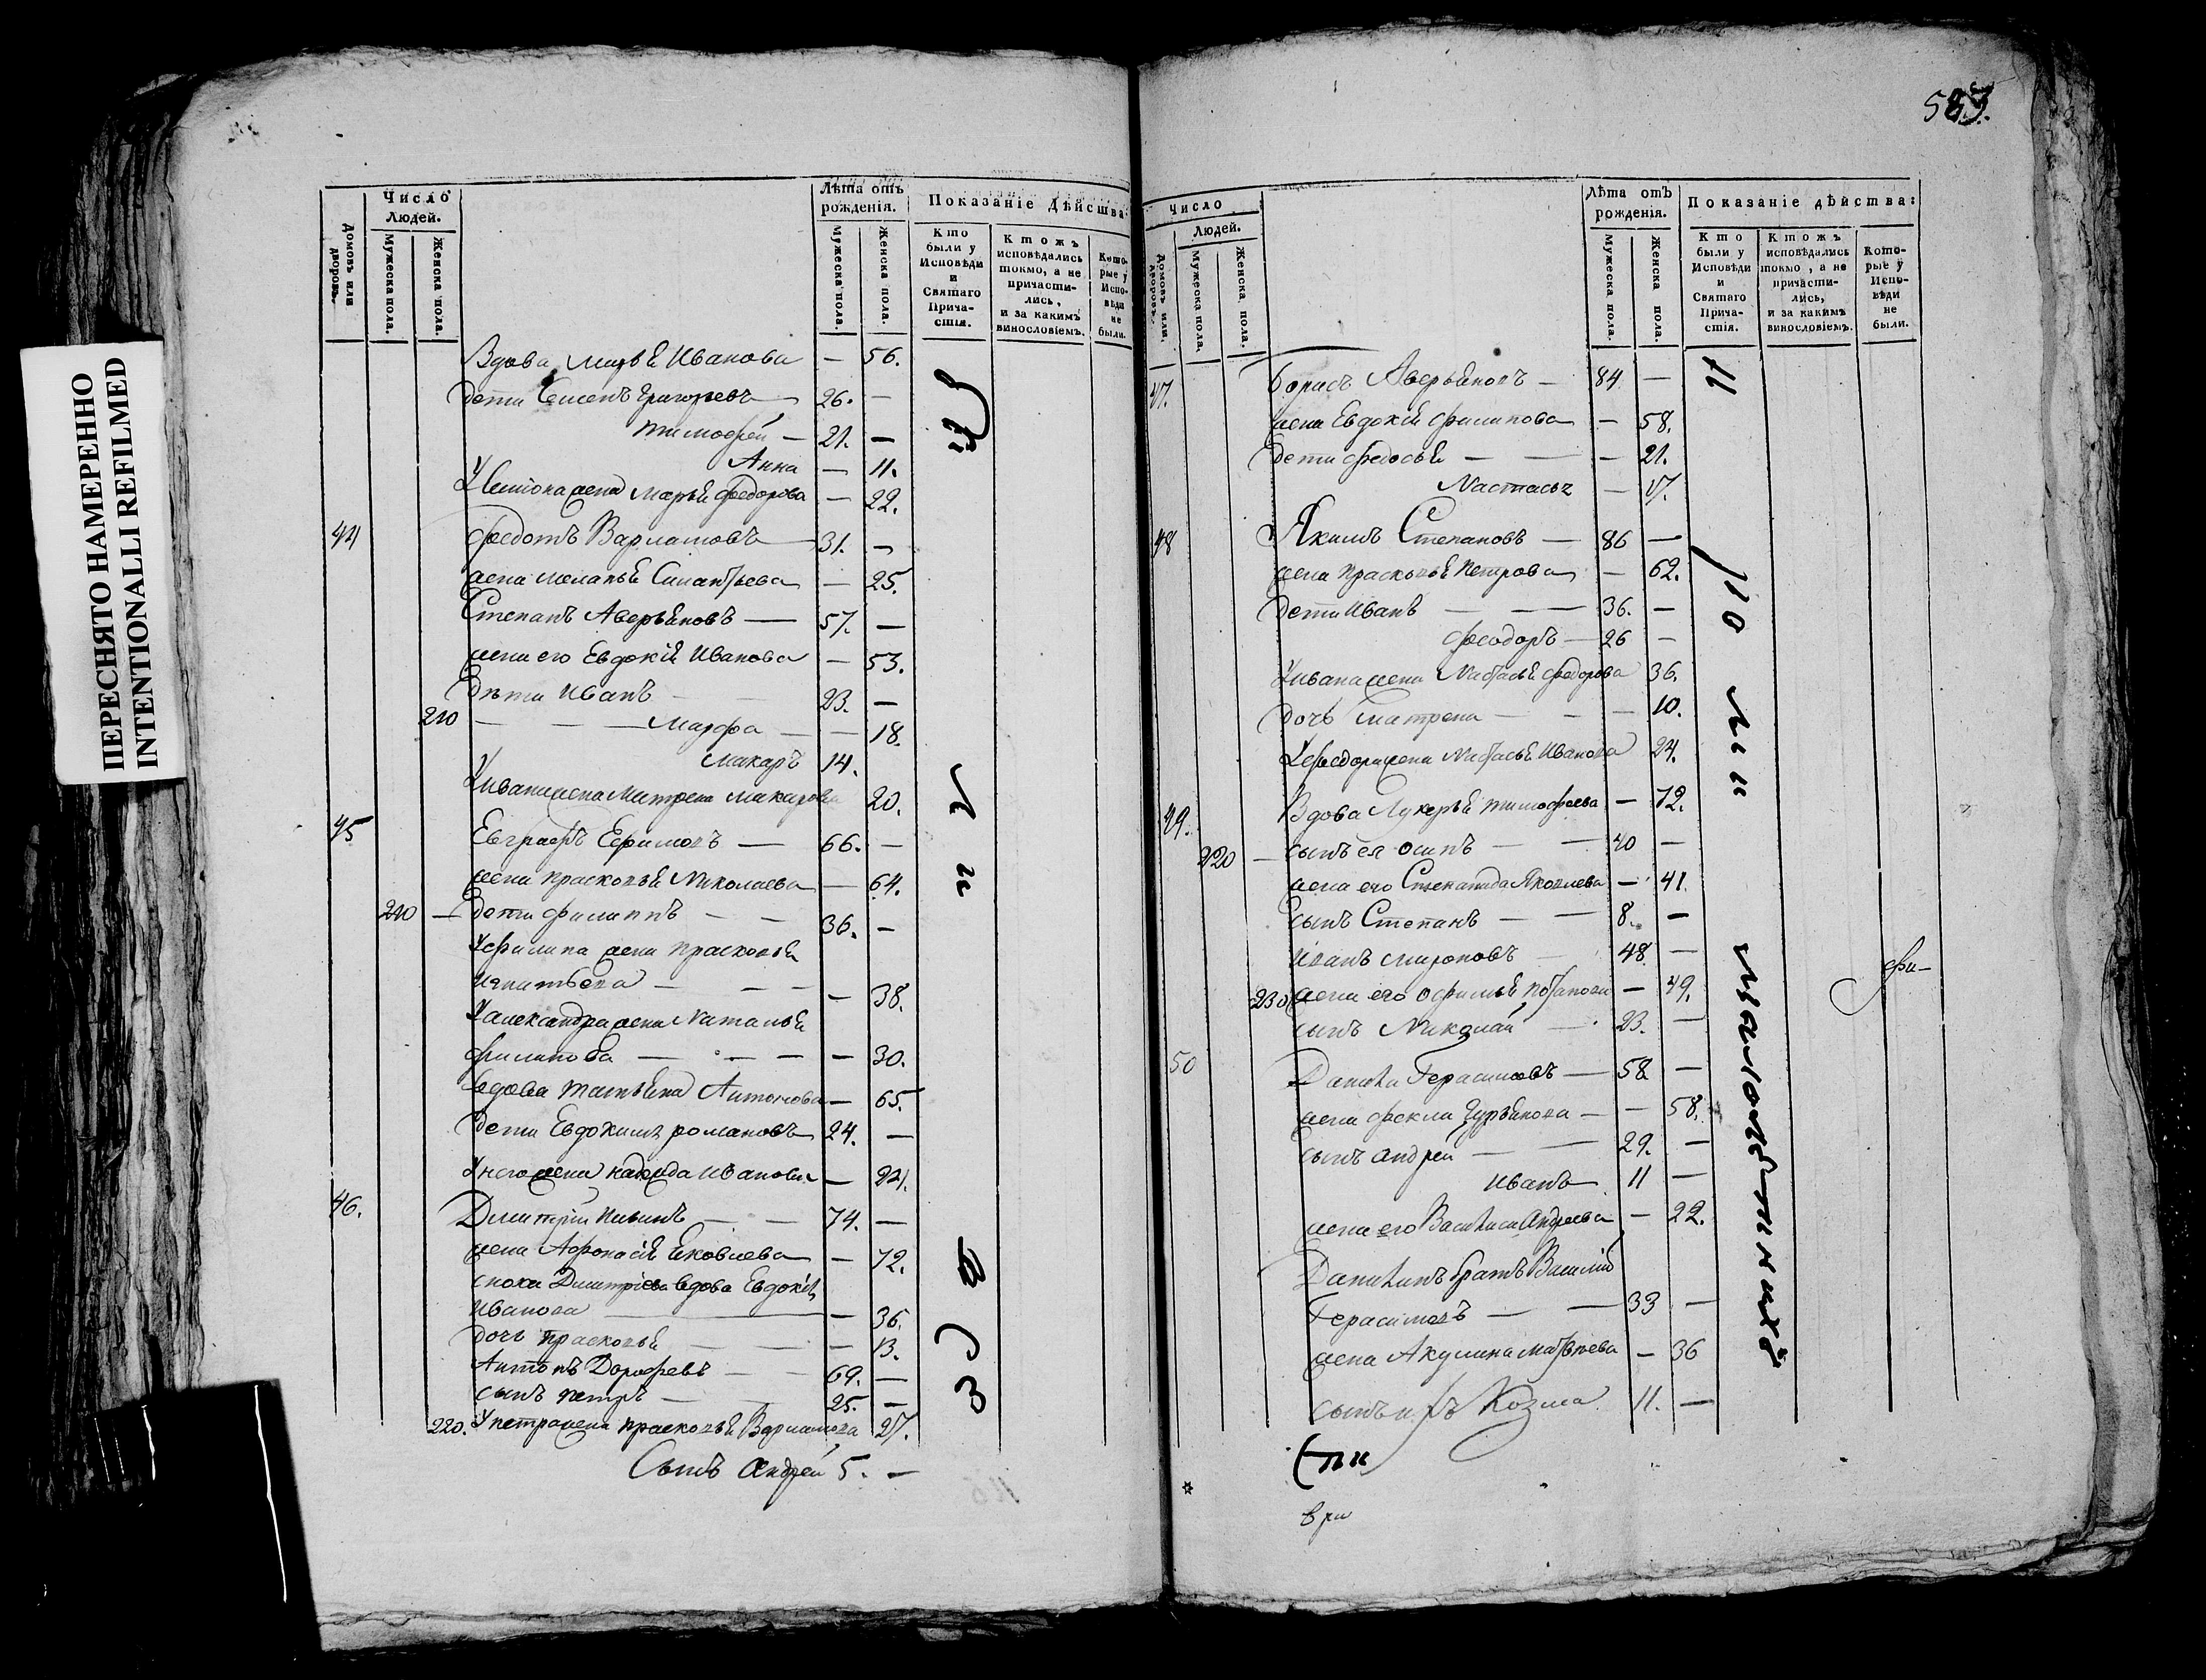 ПЕРЕСНЯТО НАМЕРЕННО
INTENTIONALLI REFILMED
Число
Людей.
Домовъ или дворовъ.
Мужеска пола.
Женска пола.
Лѣта отъ рожденія.
Мужеска пола.
Женска пола.
Показаніе Дѣйства:
Кто были у Исповѣди и Святаго Прича-стія.
Ктожъ исповѣдались токмо, а не причасти-лись, и за какимъ винословіемъ.
Кото-рые у Испо-вѣди не были.
Вдова Марья Иванова — 56.
дети Семенъ Григорьевъ 26. —
тимофей — 21. —
Анна — 11.
жена Марья федорова — 22.
44 федотъ Варламовъ 31. —
жена меланья — 25.
Степанъ Аверьяновъ — 57. —
жена его Евдокія Иванова — 53.
дѣти Иванъ — 23. —
210 — — Марфа — — 18.
макаръ 14.
Уивана жена Матрена макарова 20.
45 Евграфъ Ефимовъ — 66. —
жена прасковья Николаева — 64.
210 — дети филиппъ — — 36. —
Уфилипа жена прасковья
игнатьева — — — — 38.
Уалександра жена Наталья
филипова — — — — 30.
вдова татьяна Антонова — 65.
дети Евдокимъ романовъ 24. —
Унего жена надежда Иванова — 24.
46. Димитрій — — 74. —
жена Афонасія яковлева — 72.
сноха Димитріева вдова Евдокія
Иванова — — 36.
дочь прасковья — — 13.
Антонъ Дорофеевъ — — 69. —
сынъ петръ — 25. —
220. Упетра жена прасковья Варламова 27.
Сынъ Андрей 5. —
583.
Число
Людей.
Домовъ или дворовъ.
Мужеска пола.
Женска пола.
Лѣта отъ рожденія.
Мужеска пола.
Женска пола.
Показаніе дѣйства:
Кто были у Исповѣди и Святаго Прича-стія.
Ктожъ исповѣдались токмо, а не причасти-лись, и за какимъ винословіемъ.
Кото-рые у Испо-вѣди не были.
47. Борисъ Аверьяновъ — 84 —
жена Евдокія филипова — 58.
дети федосья — — — 21.
Настасья — 17.
48 Якимъ Степановъ — 86 —
жена прасковья петрова — 62.
дети Иванъ — — 36. —
феодоръ — 26 —
Уивана жена Настасья федорова 36.
дочь Матрена — — — 10.
Уфедора жена Настасья Иванова 24.
49. Вдова Лукерья тимофеева — 72.
220 — сынъ ея осипъ — — 40 —
жена его Степанида Яковлева — 41.
сынъ Степанъ — — 8. —
Иванъ мироновъ — 48. —
230 жена его офимья — 49.
сынъ Николай — 23. —
50 Данила Герасимовъ — 58. —
жена фекла Гурьянова — — 58.
сынъ андрей — — 29. —
Иванъ 11 —
жена его Василиса Андреева — 22.
Данилинъ братъ Василій
Герасимовъ — — 33 —
жена Акулина Матвѣева — 36
сынъ ихъ Козма 11. —
малолѣтнихъ